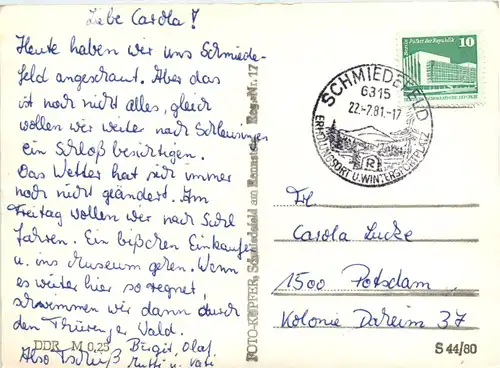 Liebe Carola!
Heute haben wir uns Schmiede-
feld angeschaut. Aber das
ist noch nicht alles, gleich
wollen wir weiter nach Schleusingen
ein Schloß besichtigen.
Das Wetter hat sich immer
noch nicht geändert. Am
Freitag wollen wir nach Suhl
fahren. Ein bißchen Einkaufen
u. ins Museum gehen. Wenn
es weiter hier so regnet,
schwemmen wir dann durch
den Thüringer Wald.
Birgit, Olaf,
Also Tschüß Mutti u. Vati
DDR M 0,25
FOTO-KÜPFER, Schmiedefeld am Rennsteig Reg.-Nr. 17
Palast der Republik
10
SCHMIEDEFELD
6315
22.-7.81.-17
R
ERHOLUNGSORT U. WINTERSPORTPLATZ
Frl
Carola Lucke
1500 Potsdam
Kolonie Daheim 37
S 44/80